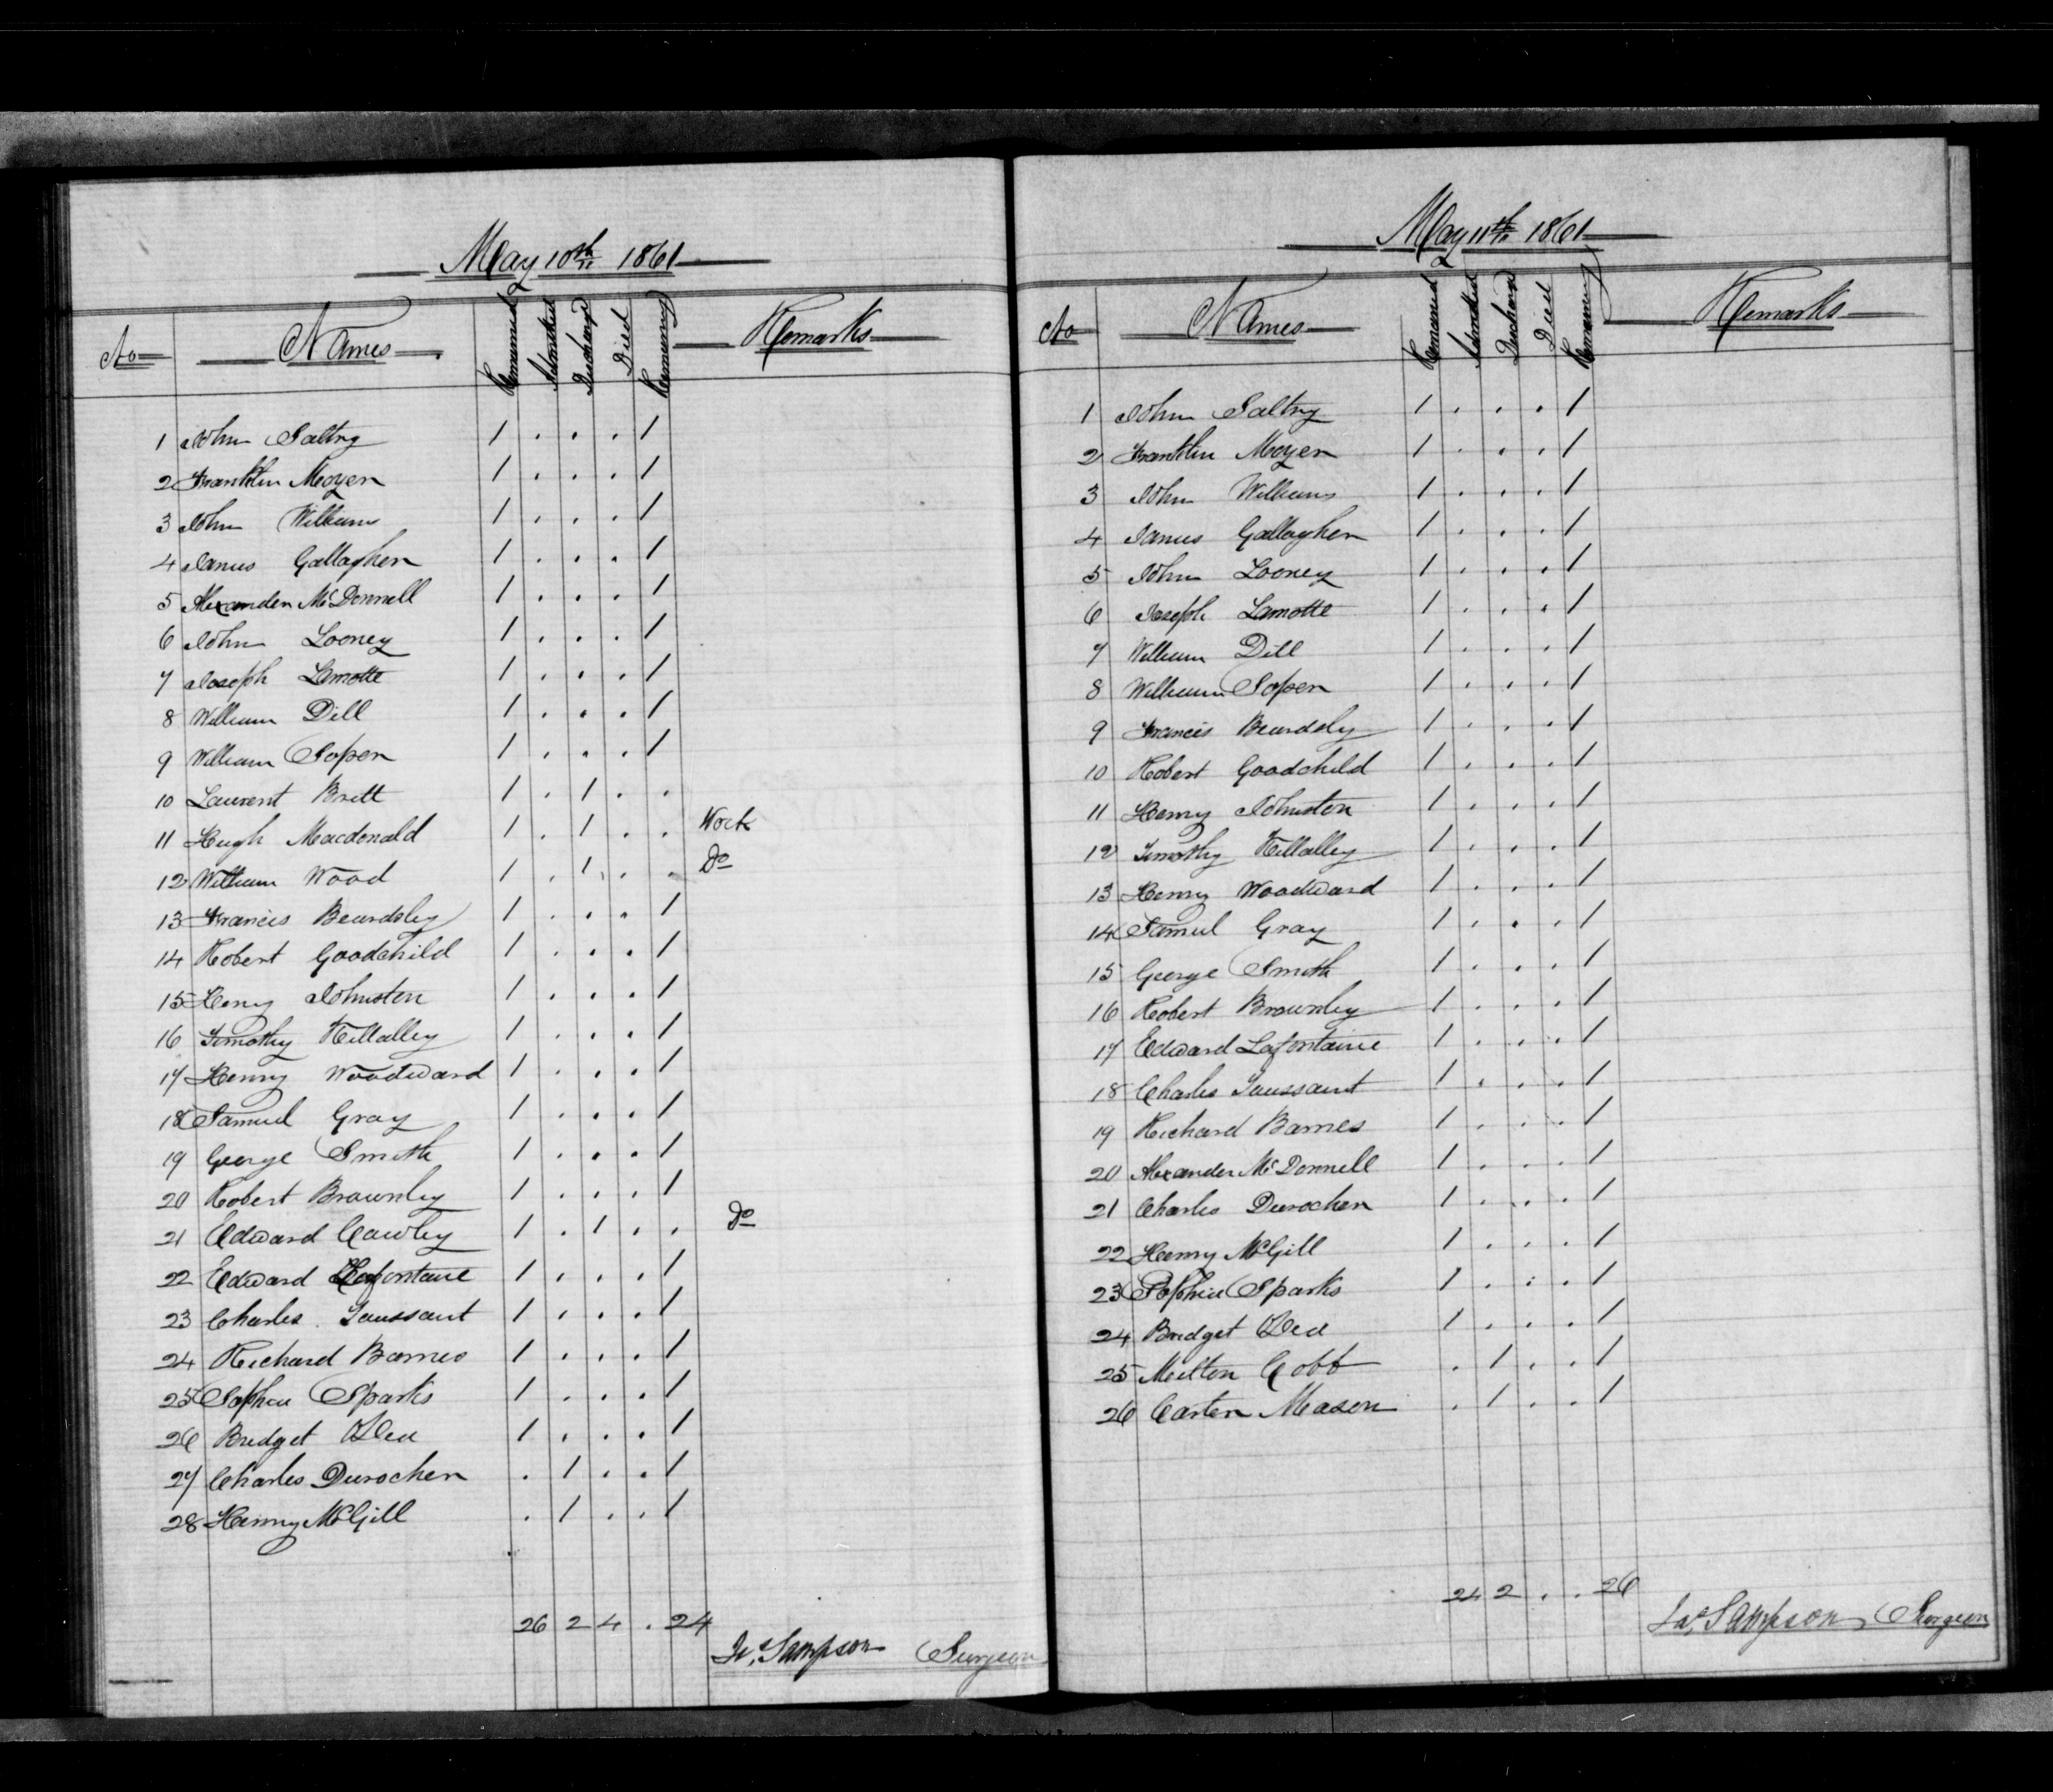 May 10th 1861
No Names Remained Admitted Discharged Died Remaining Remarks
1 John Saltry 1 . . . 1
2 Franklin Moyer 1 . . . 1
3 John Williams 1 . . . 1
4 James Gallagher 1 . . . 1
5 Alexander McDonnell 1 . . . 1
6 John Looney 1 . . . 1
7 Joseph Lamotte 1 . . . 1
8 William Dill 1 . . . 1
9 William Soper 1 . . . 1
10 Laurent Britt 1 . 1 . .
11 Hugh Macdonald 1 . 1 . . Work
12 William Wood 1 . 1 . . Do
13 Francis Beardsley 1 . . . 1
14 Robert Goodchild 1 . . . 1
15 Henry Johnston 1 . . . 1
16 Timothy Killalley 1 . . . 1
17 Henry Woodward 1 . . . 1
18 Samuel Gray 1 . . . 1
19 George Smith 1 . . . 1
20 Robert Brownley 1 . . . 1
21 Edward Cawley 1 . 1 . . Do
22 Edward Lafontaine 1 . . . 1
23 Charles Taussaint 1 . . . 1
24 Richard Barnes 1 . . . 1
25 Sophia Sparks 1 . . . 1
26 Bridget O'Dea 1 . . . 1
27 Charles Durocher . 1 . . 1
28 Henry McGill . 1 . . 1
26 2 4 . 24
Js. Sampson Surgeon
May 11th 1861
No Names Remained Admitted Discharged Died Remaining Remarks
1 John Saltry 1 . . . 1
2 Franklin Moyer 1 . . . 1
3 John Williams 1 . . . 1
4 James Gallagher 1 . . . 1
5 John Looney 1 . . . 1
6 Joseph Lamotte 1 . . . 1
7 William Dill 1 . . . 1
8 William Soper 1 . . . 1
9 Francis Beardsly 1 . . . 1
10 Robert Goodchild 1 . . . 1
11 Henry Johnston 1 . . . 1
12 Timothy Killalley 1 . . . 1
13 Henry Woodward 1 . . . 1
14 Samuel Gray 1 . . . 1
15 George Smith 1 . . . 1
16 Robert Brownley 1 . . . 1
17 Edward Lafontaine 1 . . . 1
18 Charles Taussaint 1 . . . 1
19 Richard Barnes 1 . . . 1
20 Alexander McDonnell 1 . . . 1
21 Charles Durocher 1 . . . 1
22 Henry McGill 1 . . . 1
23 Sophia Sparks 1 . . . 1
24 Bridget O'Dea 1 . . . 1
25 Milton Cobb . 1 . . 1
26 Carter Mason . 1 . . 1
24 2 . . 26
Jas. Sampson, Surgeon